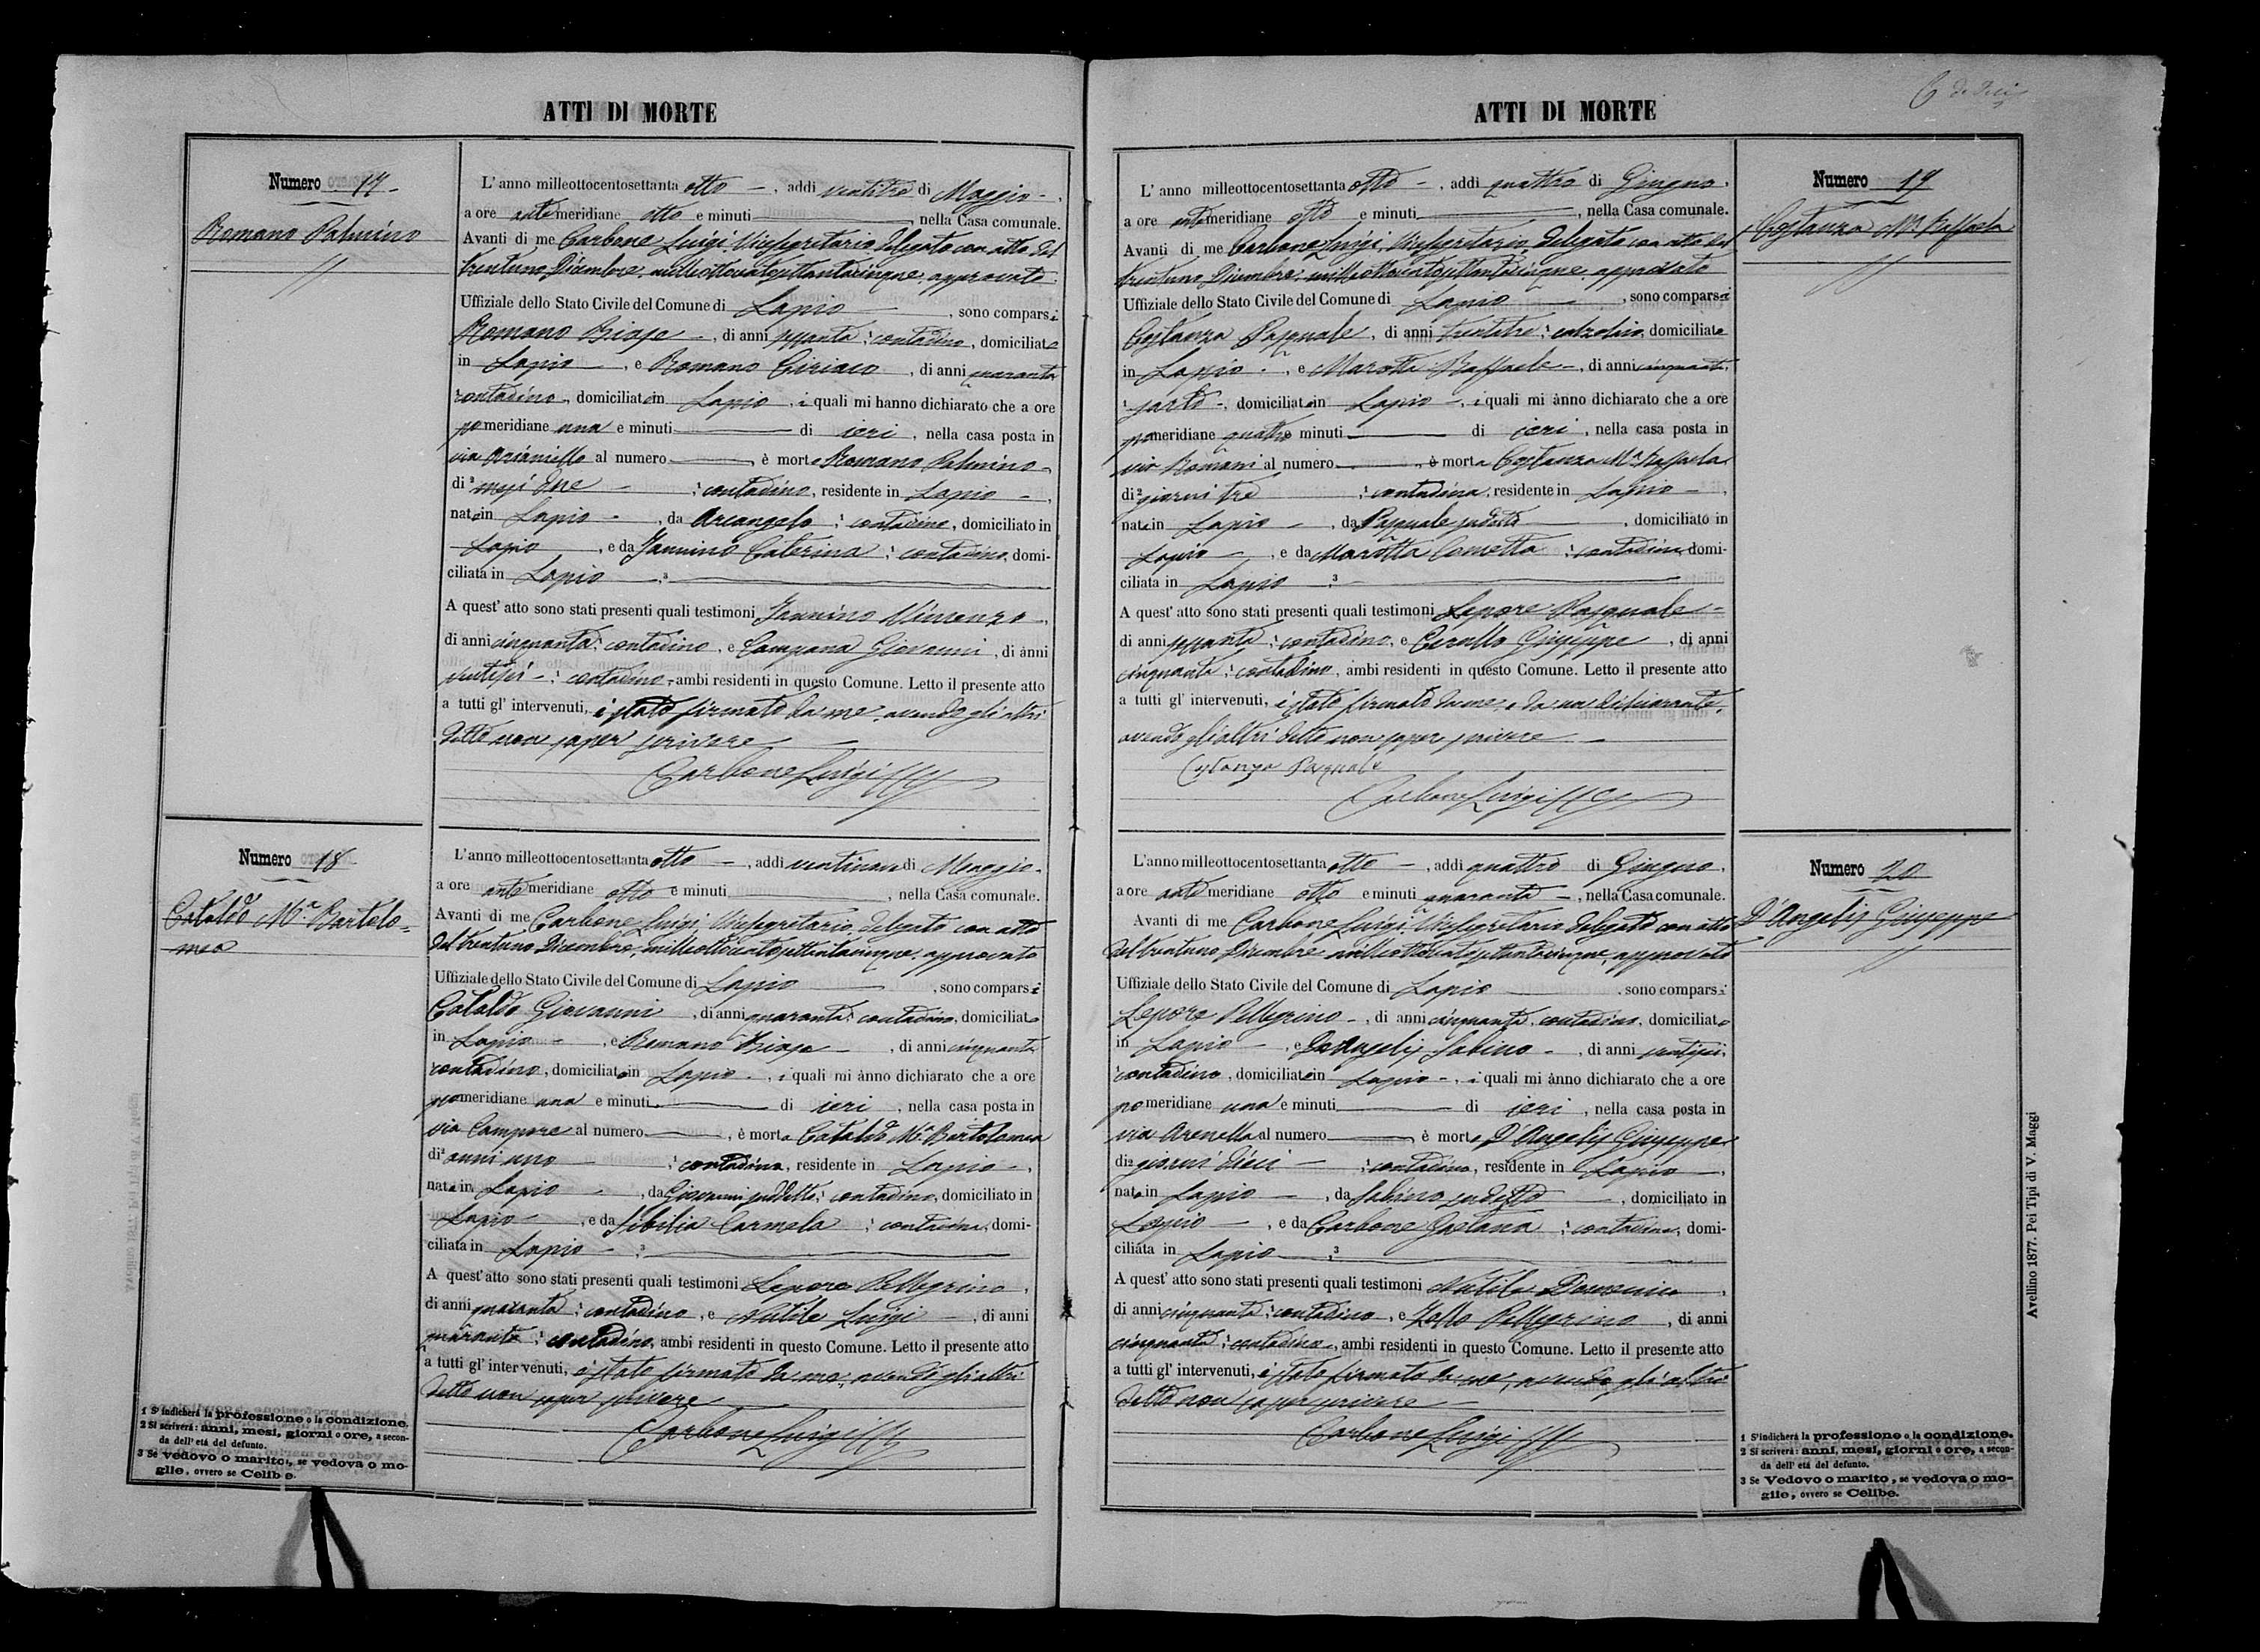 ATTI DI MORTE
Numero 17
Romano Palmino
L' anno milleottocentosettanta otto, addì ventitre di Maggio
a ore antemeridiane otto e minuti, nella Casa comunale.
Avanti di me Carbone Luigi Vicesegretario, delegato con atto del
trentuno Dicembre milleottocentosettantacinque, approvato
Uffiziale dello Stato Civile del Comune di Lapio, sono comparsi
Romano Biase, di anni sessanta, contadino, domiciliato
in Lapio, e Romano Ciriaco, di anni quaranta
contadino, domiciliato in Lapio, i quali mi hanno dichiarato che a ore
pomeridiane una e minuti di ieri, nella casa posta in
via Arianiello al numero, è morto Romano Palmino
di mesi due, contadino, residente in Lapio,
nato in Lapio, da Arcangelo, contadino, domiciliato in
Lapio, e da Jannino Caterina, contadina, domi-
ciliata in Lapio
A quest' atto sono stati presenti quali testimoni Jannino Vincenzo,
di anni cinquanta, contadino, e Campana Giovanni, di anni
ventisei, contadino, ambi residenti in questo Comune. Letto il presente atto
a tutti gl' intervenuti, è stato firmato da me, avendo gli altri
detto non saper scrivere
Carbone Luigi
Numero 18
Cataldo M.ª Bartolo=
mea
L'anno milleottocentosettanta otto, addì ventinove di Maggio
a ore antemeridiane otto e minuti, nella Casa comunale.
Avanti di me Carbone Luigi, Vicesegretario, delegato con atto
del trentuno Dicembre, milleottocentosettantacinque, approvato
Uffiziale dello Stato Civile del Comune di Lapio, sono comparsi
Cataldo Giovanni, di anni quaranta, contadino, domiciliato
in Lapio, e Romano Biase, di anni cinquanta
contadino, domiciliato in Lapio, i quali mi ànno dichiarato che a ore
pomeridiane una e minuti di ieri, nella casa posta in
via Campore al numero, è morta Cataldo M.ª Bartolomea
di anni uno, contadina, residente in Lapio,
nata in Lapio, da Giovanni suddetto, contadino, domiciliato in
Lapio, e da Sibilia Carmela, contadina, domi-
ciliata in Lapio
A quest'atto sono stati presenti quali testimoni Lepore Pellegrino,
di anni quaranta, contadino, e Nutile Luigi, di anni
quaranta, contadino, ambi residenti in questo Comune. Letto il presente atto
a tutti gl' intervenuti, è stato firmato da me, avendo gli altri
detto non saper scrivere
Carbone Luigi
1 S' indicherà la professione o la condizione.
2 Si scriverà: anni, mesi, giorni o ore, a secon-
da dell' età del defunto.
3 Se vedovo o marito, se vedova o mo-
glie, ovvero se Celibe.
ATTI DI MORTE
L' anno milleottocentosettanta otto, addì quattro di Giugno,
a ore antemeridiane otto e minuti, nella Casa comunale.
Avanti di me Carbone Luigi, Vicesegretario, delegato con atto del
trentuno Dicembre, milleottocentosettantacinque, approvato
Uffiziale dello Stato Civile del Comune di Lapio, sono comparsi
Costanza Pasquale, di anni trentatre, calzolaio, domiciliato
in Lapio, e Marotta Raffaele, di anni cinquanta,
sarto, domiciliato in Lapio, i quali mi ànno dichiarato che a ore
pomeridiane quattro e minuti di ieri, nella casa posta in
via Romani al numero, è morta Costanza M.ª Raffaela
di giorni tre, contadina, residente in Lapio,
nata in Lapio, da Pasquale sudetto, domiciliato in
Lapio, e da Marotta Cometta, contadina domi-
ciliata in Lapio
A quest' atto sono stati presenti quali testimoni Lepore Pasquale
di anni sessanta, contadino, e Cerullo Giuseppe, di anni
cinquanta, contadino, ambi residenti in questo Comune. Letto il presente atto
a tutti gl' intervenuti, è stato firmato da me, e da un dichiarante,
avendo gli altri detto non saper scrivere
Costanza Pasquale
Carbone Luigi
Numero 19
Costanza M.ª Raffaela
L'anno milleottocentosettanta otto, addì quattro di Giugno,
a ore antemeridiane otto e minuti quaranta, nella Casa comunale.
Avanti di me Carbone Luigi, Vicesegretario delegato con atto
del trentuno Dicembre milleottocentosettantacinque, approvato
Uffiziale dello Stato Civile del Comune di Lapio, sono comparsi
Lepore Pellegrino, di anni cinquanta, contadino, domiciliato
in Lapio, e D'Angelis Sabino, di anni ventisei,
contadino, domiciliato in Lapio, i quali mi ànno dichiarato che a ore
pomeridiane una e minuti di ieri, nella casa posta in
via Arenella al numero, è morto D'Angelis Giuseppe
di giorni dieci, contadino, residente in Lapio,
nato in Lapio, da Sabino sudetto, domiciliato in
Lapio, e da Carbone Gaetana, contadina, domi-
ciliata in Lapio
A quest' atto sono stati presenti quali testimoni Nutile Domenico,
di anni cinquanta, contadino, e Zollo Pellegrino, di anni
cinquanta, contadino, ambi residenti in questo Comune. Letto il presente atto
a tutti gl' intervenuti, è stato firmato da me, avendo gli altri
detto non saper scrivere
Carbone Luigi
Numero 20
D'Angelis Giuseppe
1 S'indicherà la professione o la condizione.
2 Si scriverà: anni, mesi, giorni o ore, a secon-
da dell' età del defunto.
3 Se Vedovo o marito, se vedova o mo-
glie, ovvero se Celibe.
Avellino 1877. Pei Tipi di V. Maggi